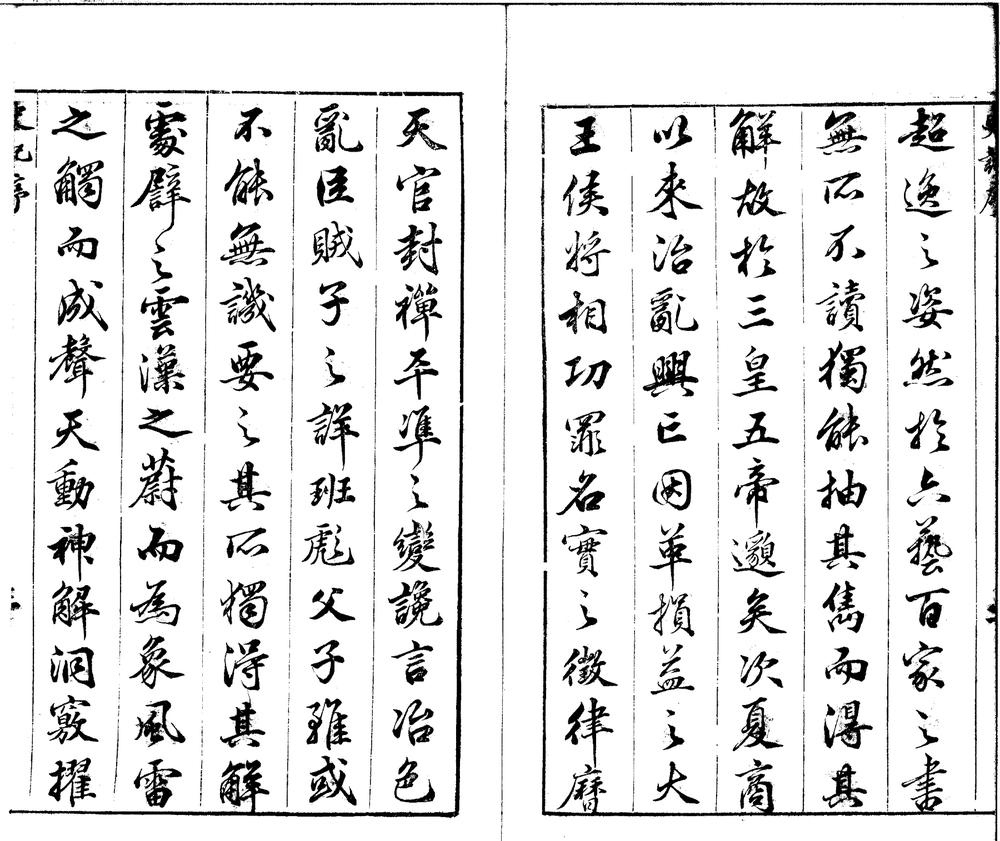 超逸之姿然於六藝百家之書
無所不讀獨能抽其雋而得其
解故於三皇五帝邈矣次夏商
以來治亂興亡因革損益之大
王侯將相功罪名實之徵律曆
天官封禪平準之變讒言冶色
亂臣賊子之詳班彪父子雖或
不能無譏要之其所獨得其解
處譬之雲漢之蔚而為象風雷
之觸而成聲天動神解洞竅擢
史記序